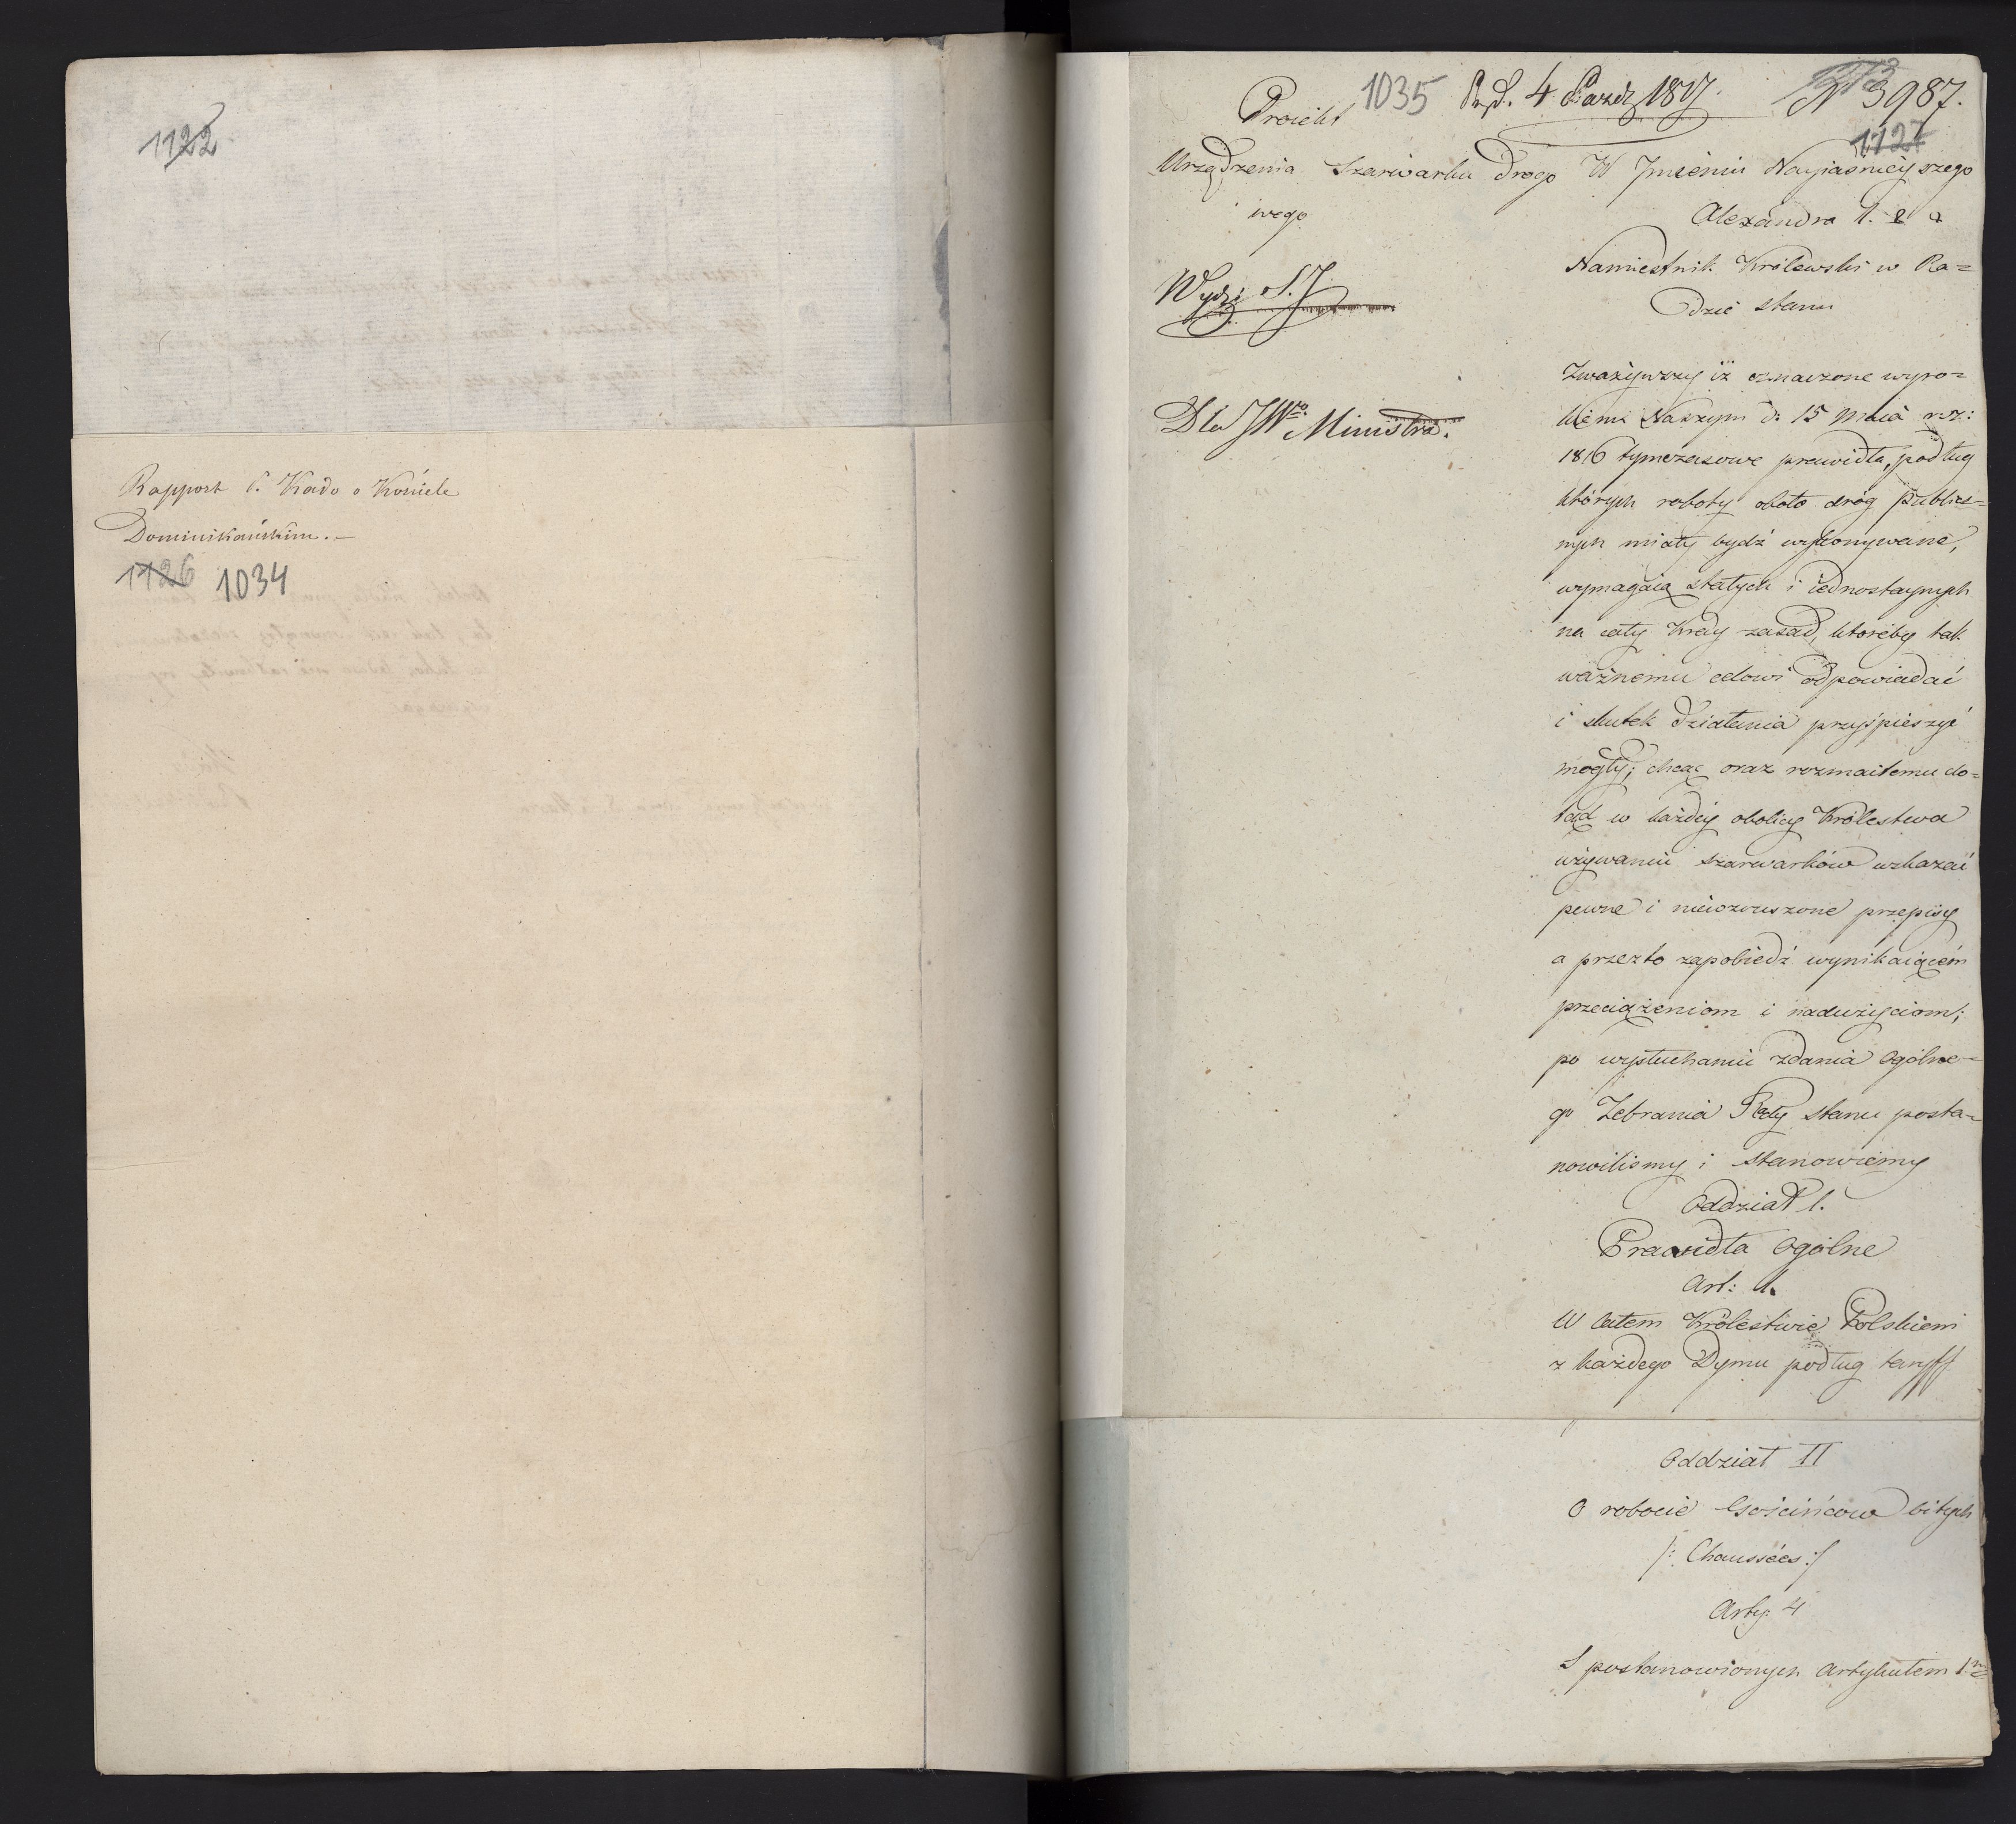 1122
Rapport P. Kado o Kościele
Dominikańskim. –
1126 1034
1035 4 Paźdz 1817. N 3987.
Proiekt
1127
Urządzenia Szarwarku Drogo
wego
W Jmieniu Nayjaśnieyszego
Alexandra 1. & &
Namiestnik Królewski w Ra=
dzie Stanu
Wydz: S. J.
Dla JWo. Ministra.
Zważywszy iż oznaczone wyro=
kiem Naszym d: 15 Maia roz:
1816 tymczasowe prawidła, podług
których roboty około dróg public=
nych miały bydź wykonywane,
wymagaią stałych i iednostaynych
na cały Kray zasad, któreby tak
ważnemu celowi odpowiadać
i skutek działania przyśpieszyć
mogły; chcąc oraz rozmaitemu do=
tąd w każdéy okolicy Królestwa
używaniu szarwarków wskazać
pewne i niewzruszone przepisy
a przezto zapobiedź wynikaiącém
przeciążeniom i nadużyciom;
po wysłuchaniu zdania Ogólne=
go Zebrania Rady Stanu posta=
nowiliśmy i stanowiemy
Oddział 1.
Prawidła Ogólne
Art: 1.
W całem Królestwie Polskiem
z każdego Dymu podług taryff
Oddział II
O robocie Gościńców bitych
/: Chaussées :/
Arty: 4
S postanowionych Artykułem 1m